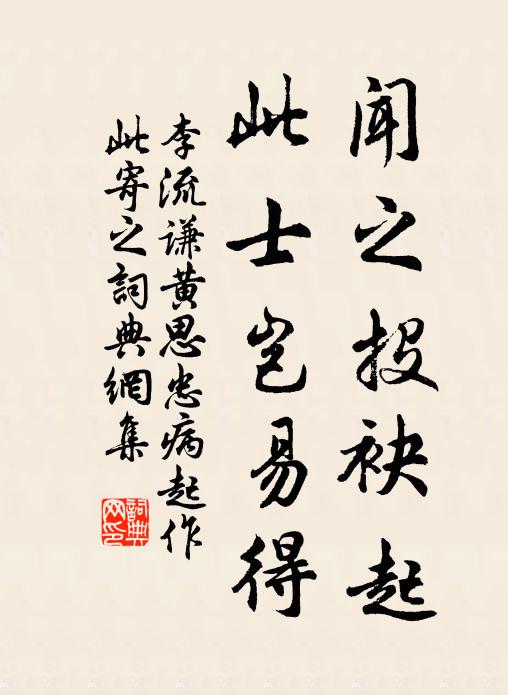 闻之投袂起
此士岂易得
李流谦黄思忠病起作
此寄之词典网集
词典网印